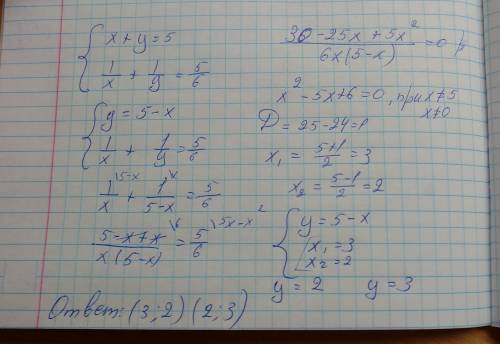 { x + y = 5
1/x + 1/y = 5/6
{ y = 5 - x
1/x + 1/y = 5/6
1/x \5-x + 1/(5-x) \x = 5/6
(5-x+x)/(x(5-x)) \6 = 5/6 \5x-x²
(30 - 25x + 5x²)/(6x(5-x)) = 0
x² - 5x + 6 = 0, при x≠5
x≠0
D = 25 - 24 = 1
x₁ = (5+1)/2 = 3
x₂ = (5-1)/2 = 2
{ y = 5 - x
[ x₁ = 3
x₂ = 2
y = 2 y = 3
Ответ: (3; 2) (2; 3)